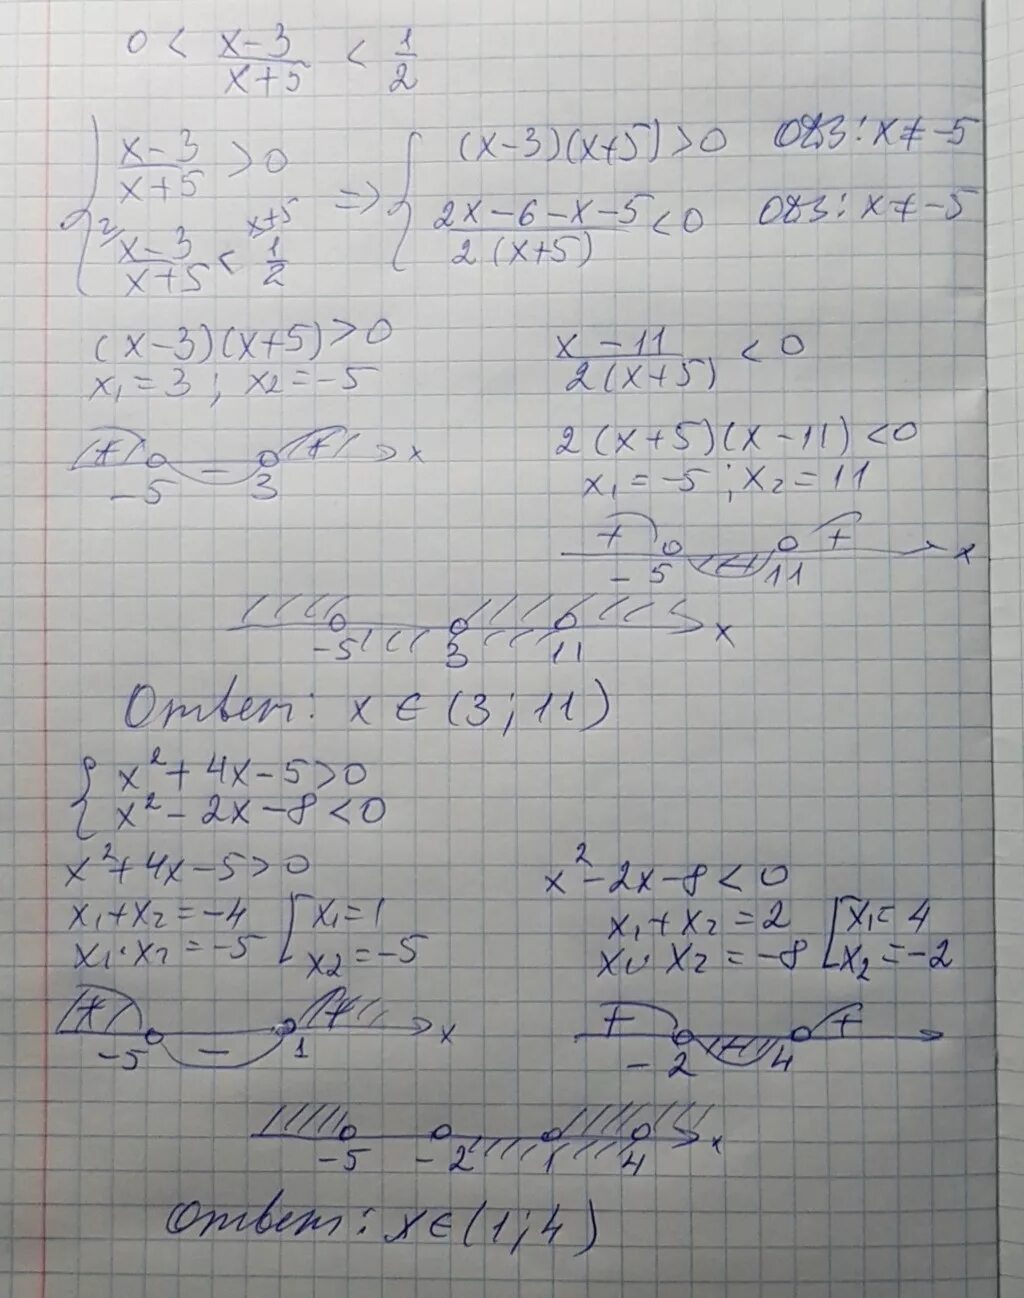 0 < (x-3)/(x+5) < 1/2
{ (x-3)/(x+5) > 0 => { (x-3)(x+5) > 0 ОДЗ: x ≠ -5
2/ (x-3)/(x+5) < x+5/ 1/2 (2x-6-x-5)/(2(x+5)) < 0 ОДЗ: x ≠ -5
(x-3)(x+5) > 0
x₁ = 3; x₂ = -5
+ - + x
-5 3
(x-11)/(2(x+5)) < 0
2(x+5)(x-11) < 0
x₁ = -5; x₂ = 11
+ - + x
-5 11
-5 3 11 x
Ответ: x ∈ (3; 11)
{ x² + 4x - 5 > 0
x² - 2x - 8 < 0
x² + 4x - 5 > 0
x₁ + x₂ = -4 [ x₁ = 1
x₁ · x₂ = -5 x₂ = -5
+ - + x
-5 1
x² - 2x - 8 < 0
x₁ + x₂ = 2 [ x₁ = 4
x₁ · x₂ = -8 x₂ = -2
+ - +
-2 4
-5 -2 1 4 x
Ответ: x ∈ (1; 4)